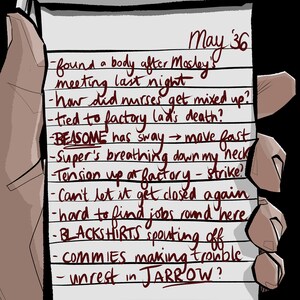 May '36
- found a body after Mosley's
meeting last night
- how did nurses get mixed up?
- tied to factory lad's death?
- BEASOME has sway → move fast
- Super's breathing down my neck
- Tension up at factory - strike?
- Can't let it get closed again
- hard to find jobs round here
- BLACKSHIRTS spouting off
- COMMIES making trouble
- unrest in JARROW?